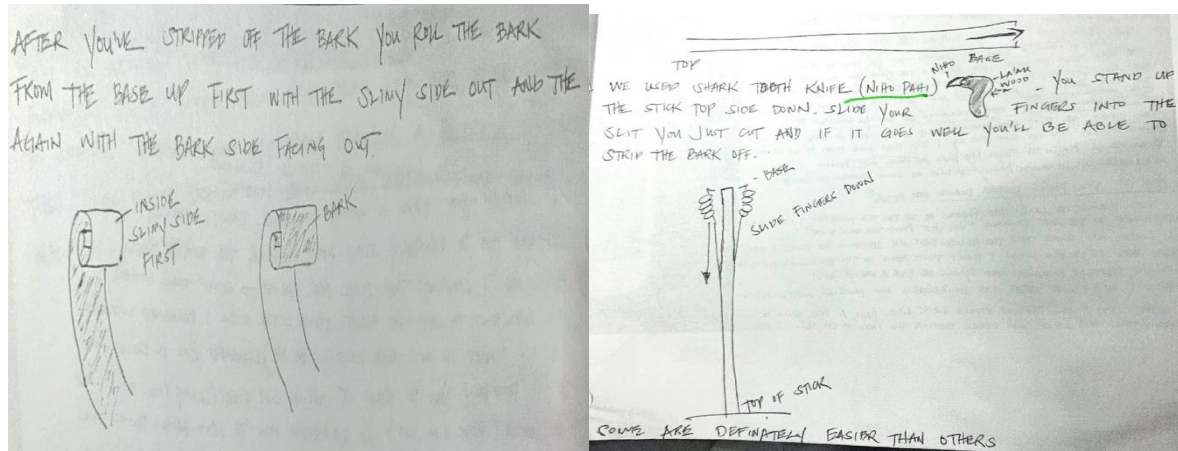 AFTER YOU'VE STRIPPED OFF THE BARK YOU ROLL THE BARK
FROM THE BASE UP FIRST WITH THE SLIMY SIDE OUT AND THE
AGAIN WITH THE BARK SIDE FACING OUT.
INSIDE
SLIMY SIDE
FIRST
BARK
TOP
BASE
WE USED SHARK TOOTH KNIFE (NIHO PAHI)
NIHO
LA'AU
WOOD
- YOU STAND UP
THE STICK TOP SIDE DOWN. SLIDE YOUR FINGERS INTO THE
SLIT YOU JUST CUT AND IF IT GOES WELL YOU'LL BE ABLE TO
STRIP THE BARK OFF.
- BASE
SLIDE FINGERS DOWN
TOP OF STICK
SOME ARE DEFINATELY EASIER THAN OTHERS